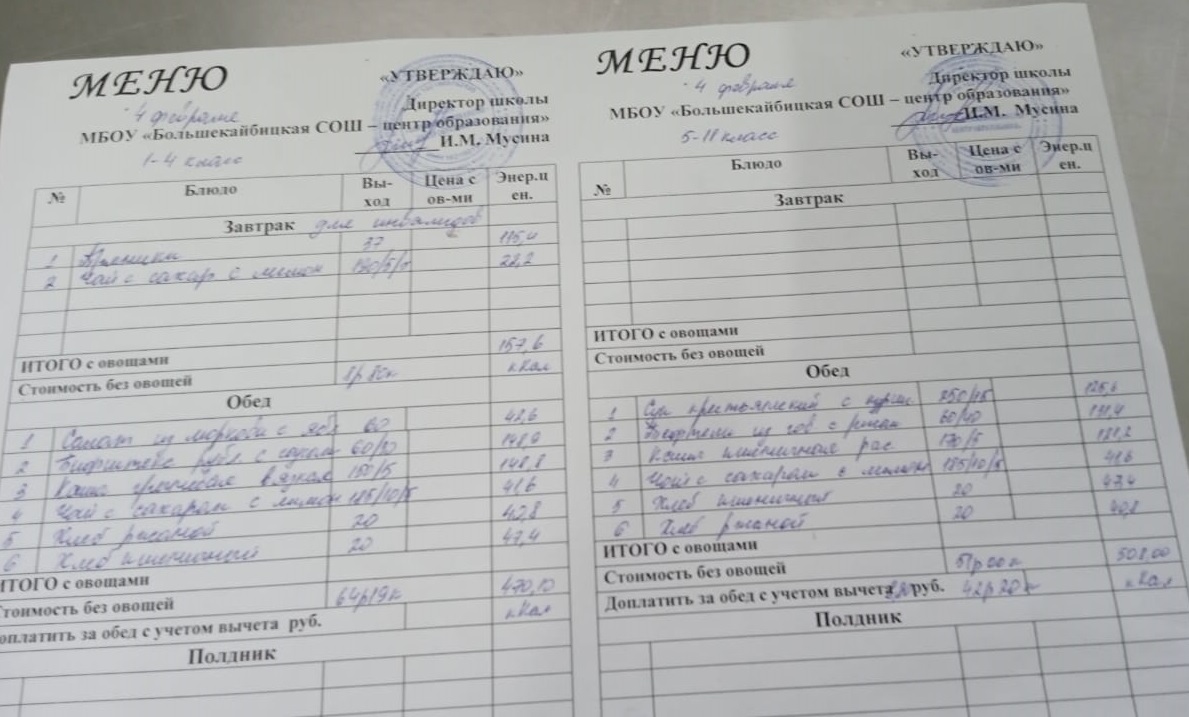 МЕНЮ
«УТВЕРЖДАЮ»
4 февраля
Директор школы
МБОУ «Большекайбицкая СОШ – центр образования»
И.М. Мусина
1-4 класс
№ Блюдо Вы-ход Цена с ов-ми Энер.ц ен.
Завтрак для инвалидов
1 37 115,4
2 Чай с сахар с лимон 22,2
ИТОГО с овощами 157,6
Стоимость без овощей 8р 86к кКал
Обед
1 Салат из моркови с ябл 60 42,6
2 Бифштекс рубл. с 60/10 148,9
3 Каша гречневая вязкая 150/5 148,8
4 Чай с сахаром с лимон 185/10/5 41,6
5 Хлеб ржаной 20 42,8
6 Хлеб пшеничный 20 47,4
ИТОГО с овощами
Стоимость без овощей 64р19к 470,10
Доплатить за обед с учетом вычета руб. кКал
Полдник
МЕНЮ
«УТВЕРЖДАЮ»
4 февраля
Директор школы
МБОУ «Большекайбицкая СОШ – центр образования»
И.М. Мусина
5-11 класс
№ Блюдо Вы-ход Цена с ов-ми Энер.ц ен.
Завтрак
ИТОГО с овощами
Стоимость без овощей
Обед
1 Суп крестьянский с 250/15
2 Бифтели из гов с 60/40
3 Каша пшеничная рас 170/5 181,2
4 Чай с сахаром с лимон 185/10/5 41,6
5 Хлеб пшеничный 20 47,4
6 Хлеб ржаной 20 40,8
ИТОГО с овощами
Стоимость без овощей 51р 00к 508,00
Доплатить за обед с учетом вычета руб. 42р 20к кКал
Полдник